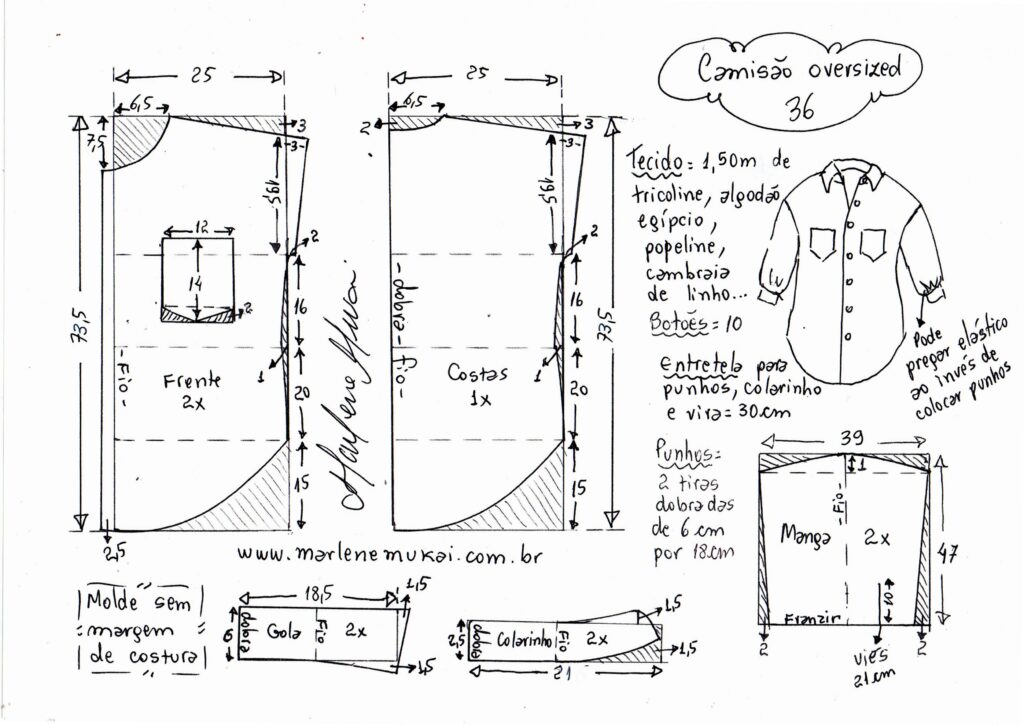 Camisão oversized
36
25
6,5
7,5
3
3
19,5
2
12
14
2
16
73,5
1
20
Fio
Frente
2x
15
2,5
25
2
3
3
19,5
2
dobra - fio
16
73,5
1
20
Costas
1x
15
Marlene Mukai
www.marlenemukai.com.br
Tecido= 1,50m de
tricoline, algodão
egípcio,
popeline,
cambraia
de linho...
Botões= 10
Entretela para
punhos, colarinho
e vira= 30cm
Pode
pregar elástico
ao invés de
colocar punhos
Punhos=
2 tiras
dobradas
de 6cm
por 18cm
39
1
Fio
Manga 2x
47
10
Franzir
2
2
viés
21cm
Molde sem
margem
de costura
18,5
1,5
6
dobra
Gola
Fio
2x
1,5
1,5
2,5
dobra
Colarinho
Fio
2x
1,5
21